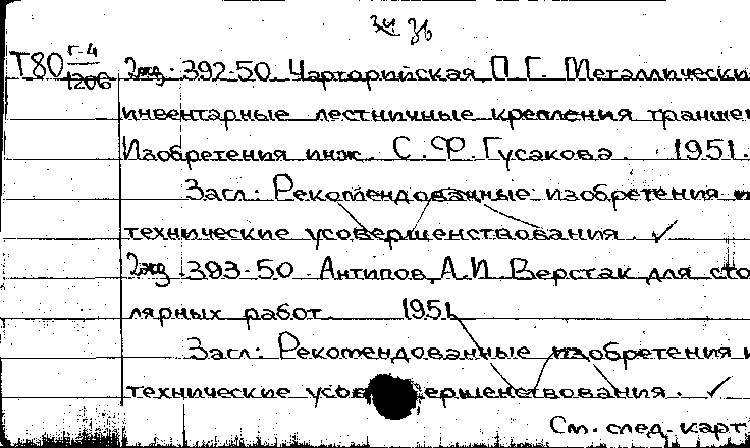 36
Т80 Г-4/1206 2жд. 392-50. Чарторийская П.Г. Металлически
инвентарные лестничные крепления транше
Изобретения инж. С.Ф. Гусакова. 1951.
Загл: Рекомендованные изобретения и
технические усовершенствования. ✓
2жд 393-50. Антипов, А.И. Верстак для сто
лярных работ 1951
Загл: Рекомендованные изобретения и
технические усов ершенствования. ✓
См. след. карт